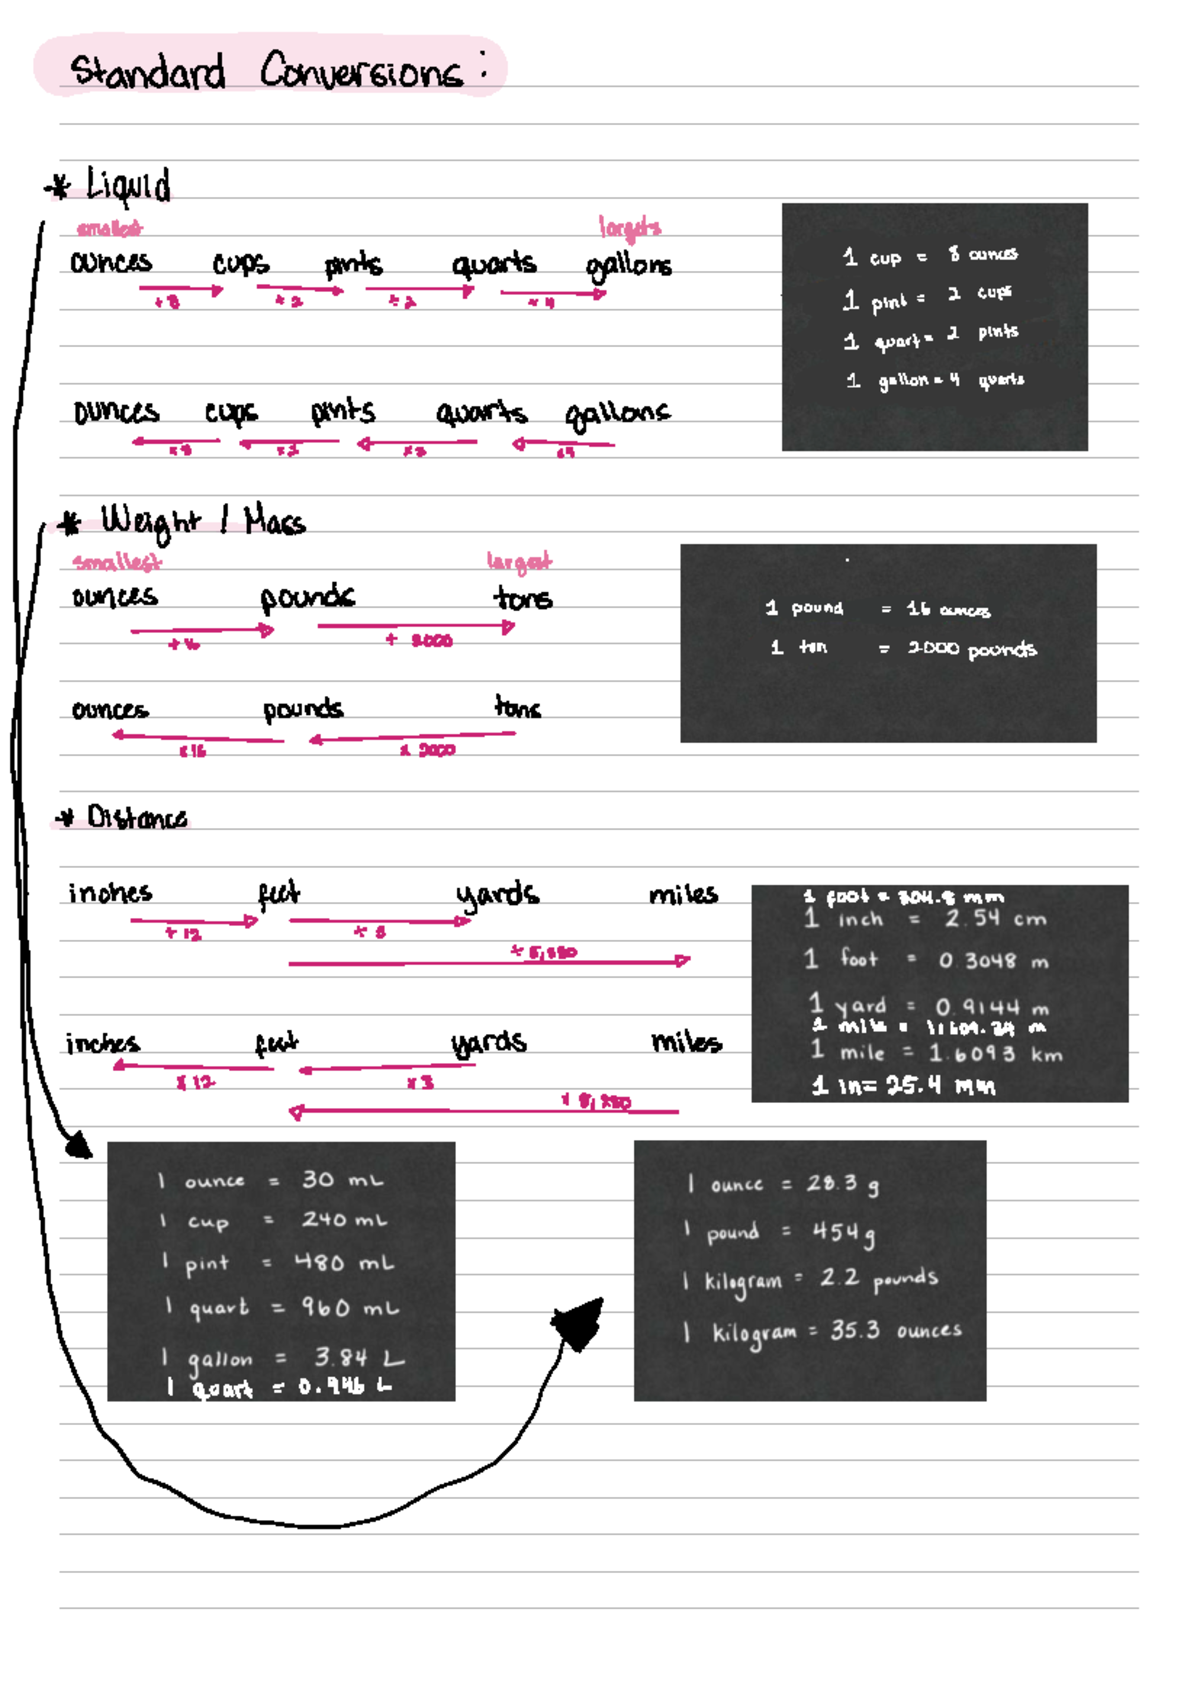 Standard Conversions:
* Liquid
smallest largets
ounces cups pints quarts gallons
÷ 8 ÷ 2 ÷ 2 ÷ 4
1 cup = 8 ounces
1 pint = 2 cups
1 quart = 2 pints
1 gallon = 4 quarts
ounces cups pints quarts gallons
x 8 x 2 x 2 x 4
* Weight / Mass
smallest largest
ounces pounds tons
÷ 16 ÷ 2000
1 pound = 16 ounces
1 ton = 2000 pounds
ounces pounds tons
x 16 x 2000
* Distance
inches feet yards miles
÷ 12 ÷ 3
÷ 5,280
1 foot = 304.8 mm
1 inch = 2.54 cm
1 foot = 0.3048 m
1 yard = 0.9144 m
1 mile = m
1 mile = 1.6093 km
1 in = 25.4 mm
inches feet yards miles
x 12 x 3
x 5,280
1 ounce = 30 mL
1 cup = 240 mL
1 pint = 480 mL
1 quart = 960 mL
1 gallon = 3.84 L
1 quart = 0.946 L
1 ounce = 28.3 g
1 pound = 454 g
1 kilogram = 2.2 pounds
1 kilogram = 35.3 ounces